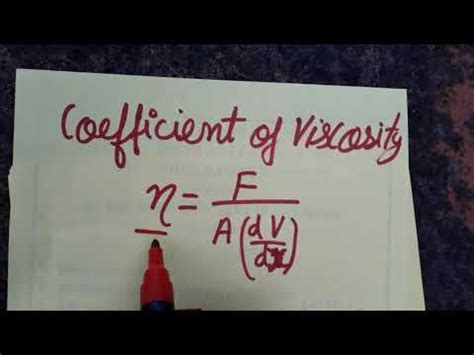 Coefficient of Viscosity
η = F / A (dV/dx)